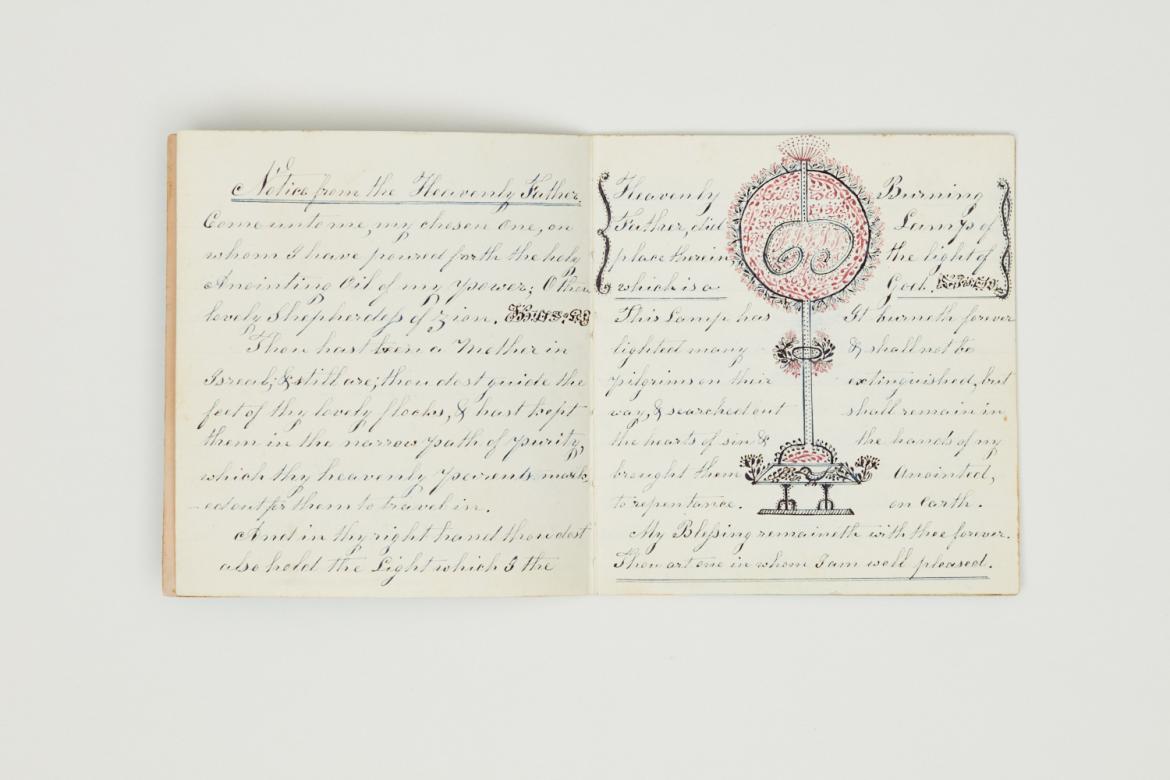 Notice from the Heavenly Father.
Come unto me, my chosen One, on
whom I have poured forth the holy
Anointing Oil of my power; O thou
lovely Shepherdess of Zion.
Thou hast been a Mother in
Isreal; & still are; thou dost guide the
feet of thy lovely flocks, & hast kept
them in the narrow path of purity,
which thy heavenly parents mark-
-ed out for them to travel in.
And in thy right hand thou dost
also hold the Light which I the
Heavenly
Father, did
place therein
which is a
Burning
Lamp of
the light of
God.
This Lamp has
lighted many
pilgrims on their
way, & searched out
the hearts of sin &
brought them
to repentance.
It burneth forever
& shall not be
extinguished, but
shall remain in
the hands of my
Anointed,
on Earth.
My Blessing remaineth with thee forever.
Thou art one in whom I am well pleased.